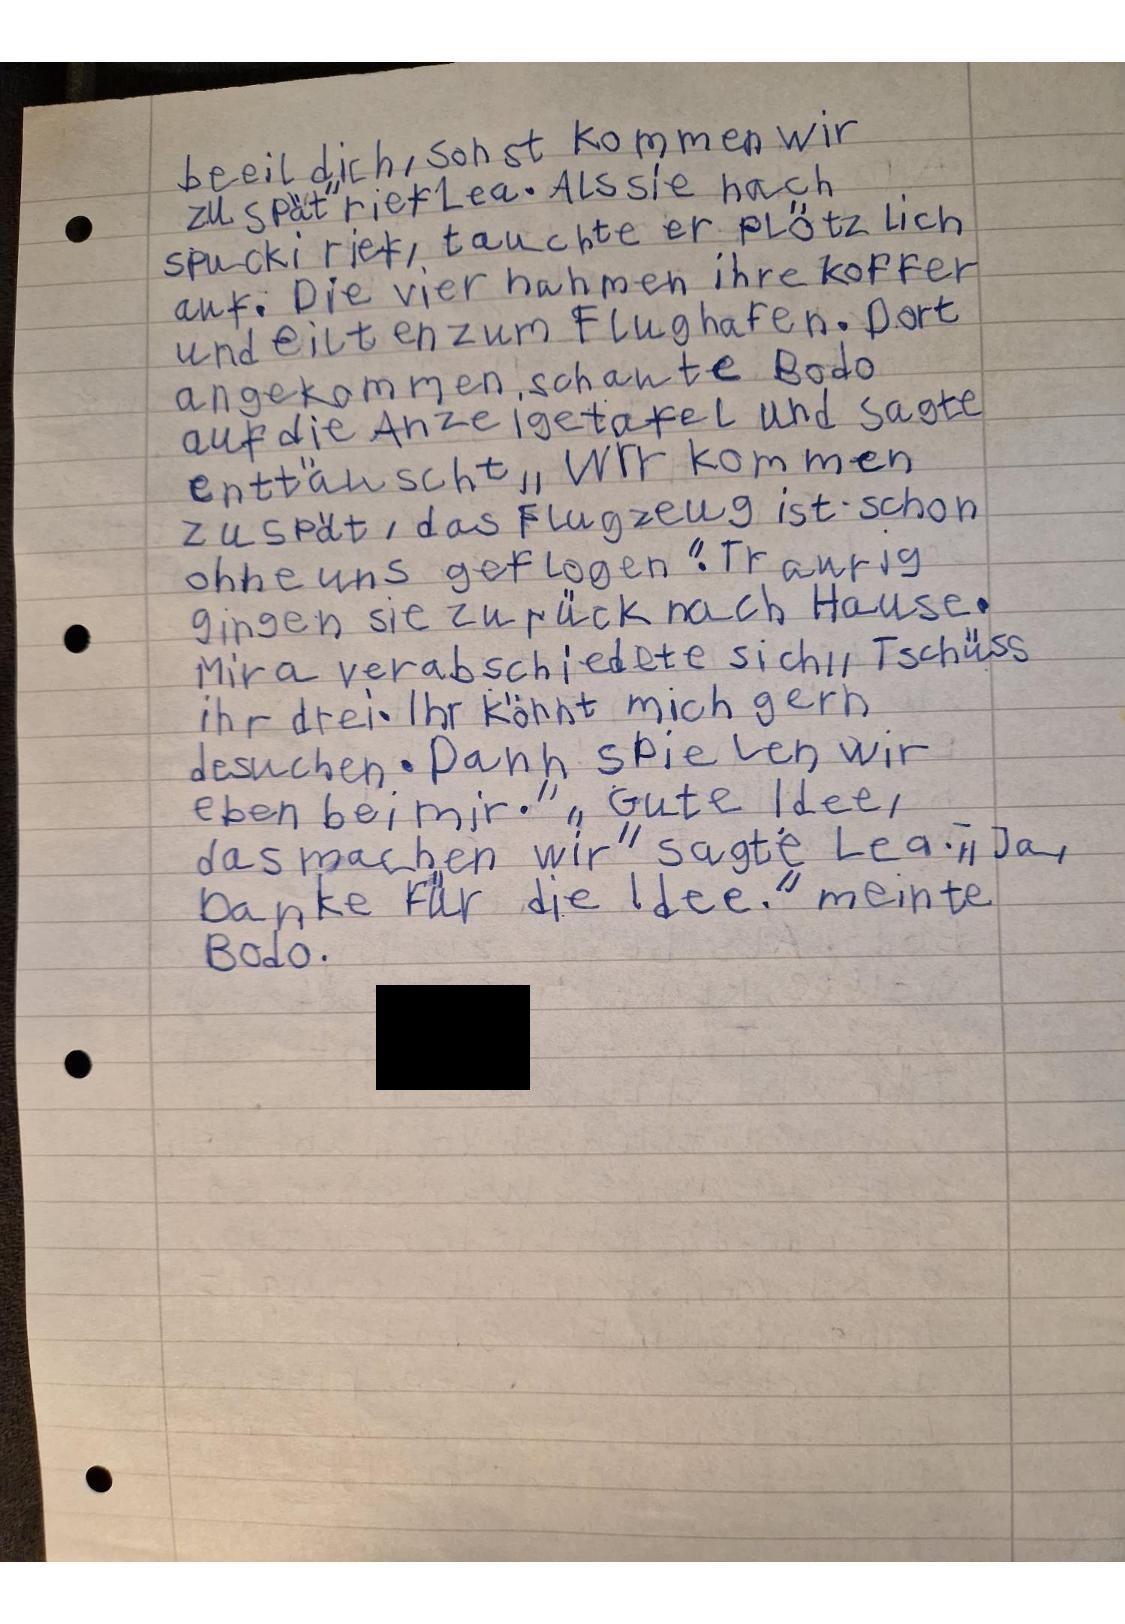 beeil dich, sonst kommen wir
zu spät" rief Lea. Als sie nach
spucki rief, tauchte er plötzlich
auf. Die vier nahmen ihre koffer
und eilten zum Flughafen. Dort
angekommen, schaute Bodo
auf die Anzeigetafel und sagte
enttäuscht „ Wir kommen
zu spät, das Flugzeug ist schon
ohne uns geflogen". Traurig
gingen sie zurück nach Hause.
Mira verabschiedete sich „ Tschüss
ihr drei. Ihr könnt mich gern
desuchen. Dann spielen wir
eben bei mir." „ Gute Idee,
das machen wir" sagte Lea. „ Ja,
Danke für die Idee." meinte
Bodo.